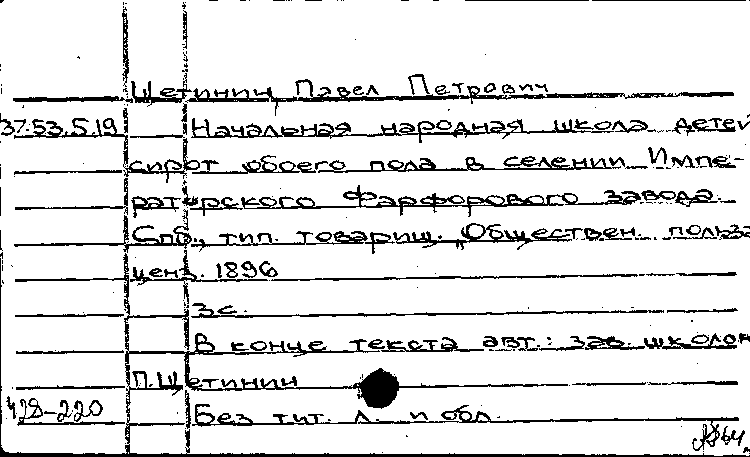 Щетинин, Павел Петрович
37.53.5.19 Начальная народная школа детей
сирот обоего пола в селении Импе-
раторского Фарфорового завода.
Спб., тип. товарищ. „Обществен. польза
ценз. 1896
3с.
В конце текста авт.: зав. школой
П. Щетинин
428-220 Без тит. л. и обл.